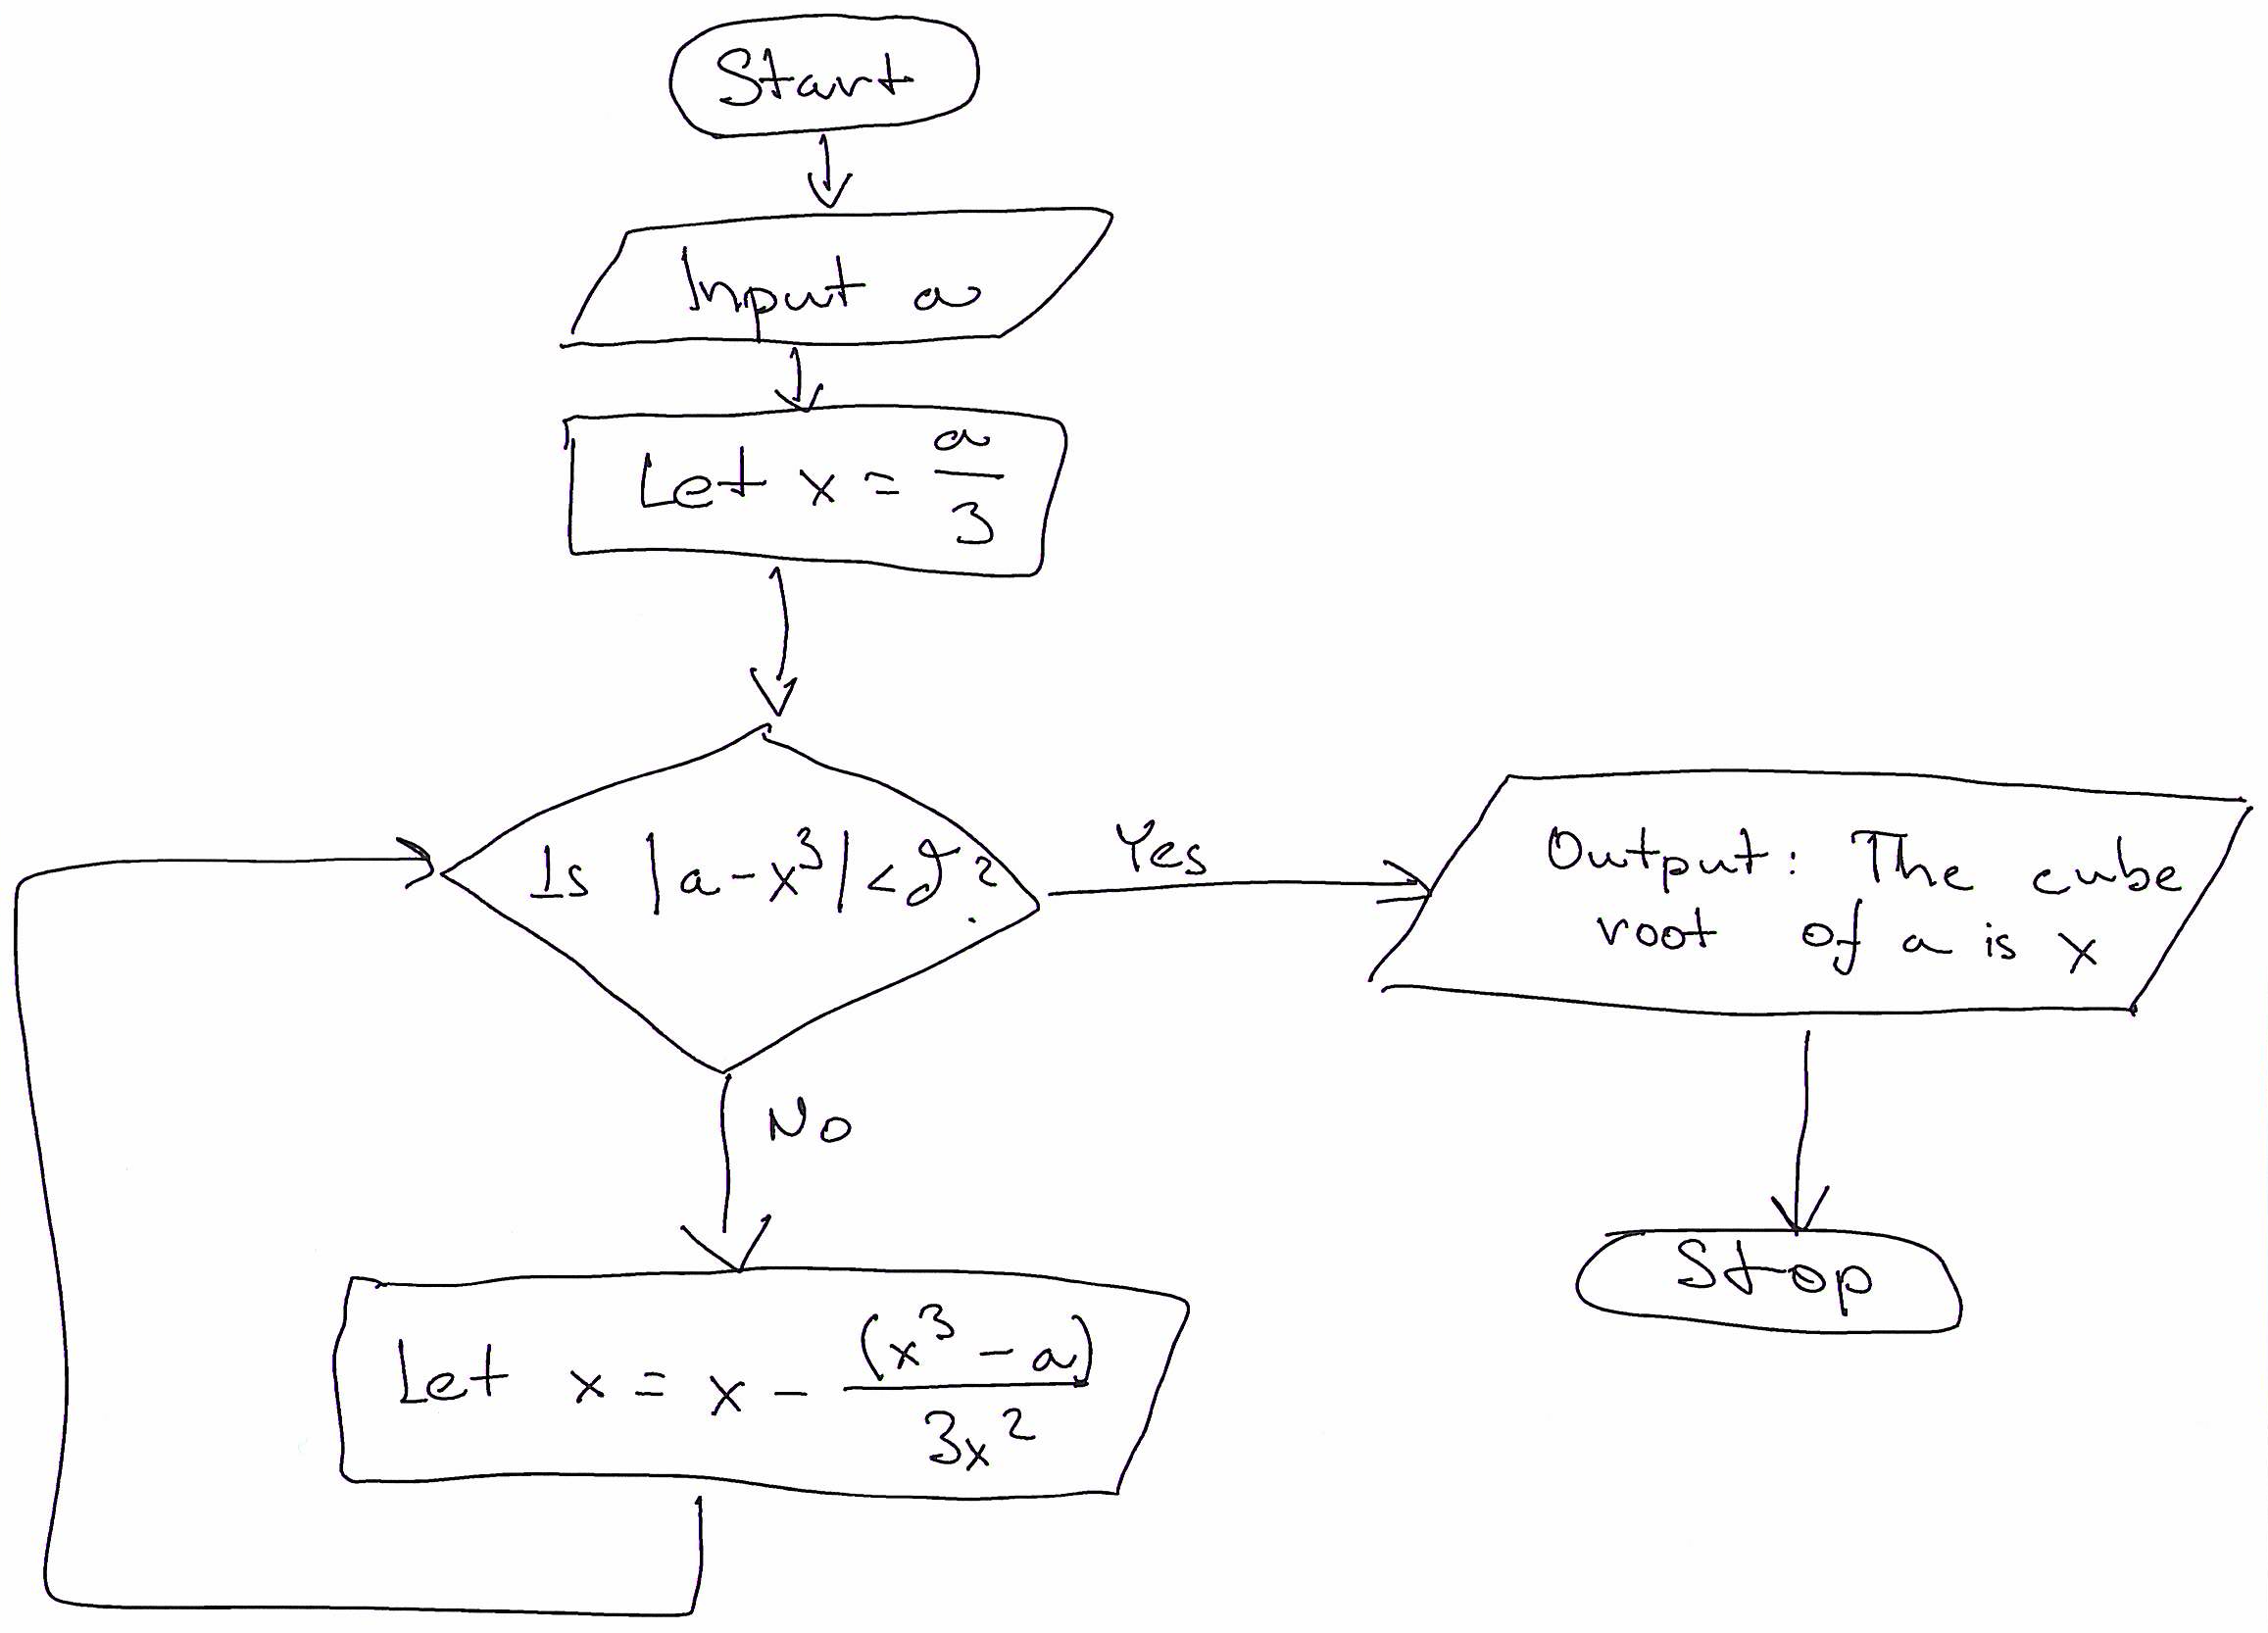 Start
Input a
Let x = a/3
Is |a-x³| < δ?
Yes
Output: The cube
root of a is x
No
Stop
Let x = x - (x³ - a)/3x²